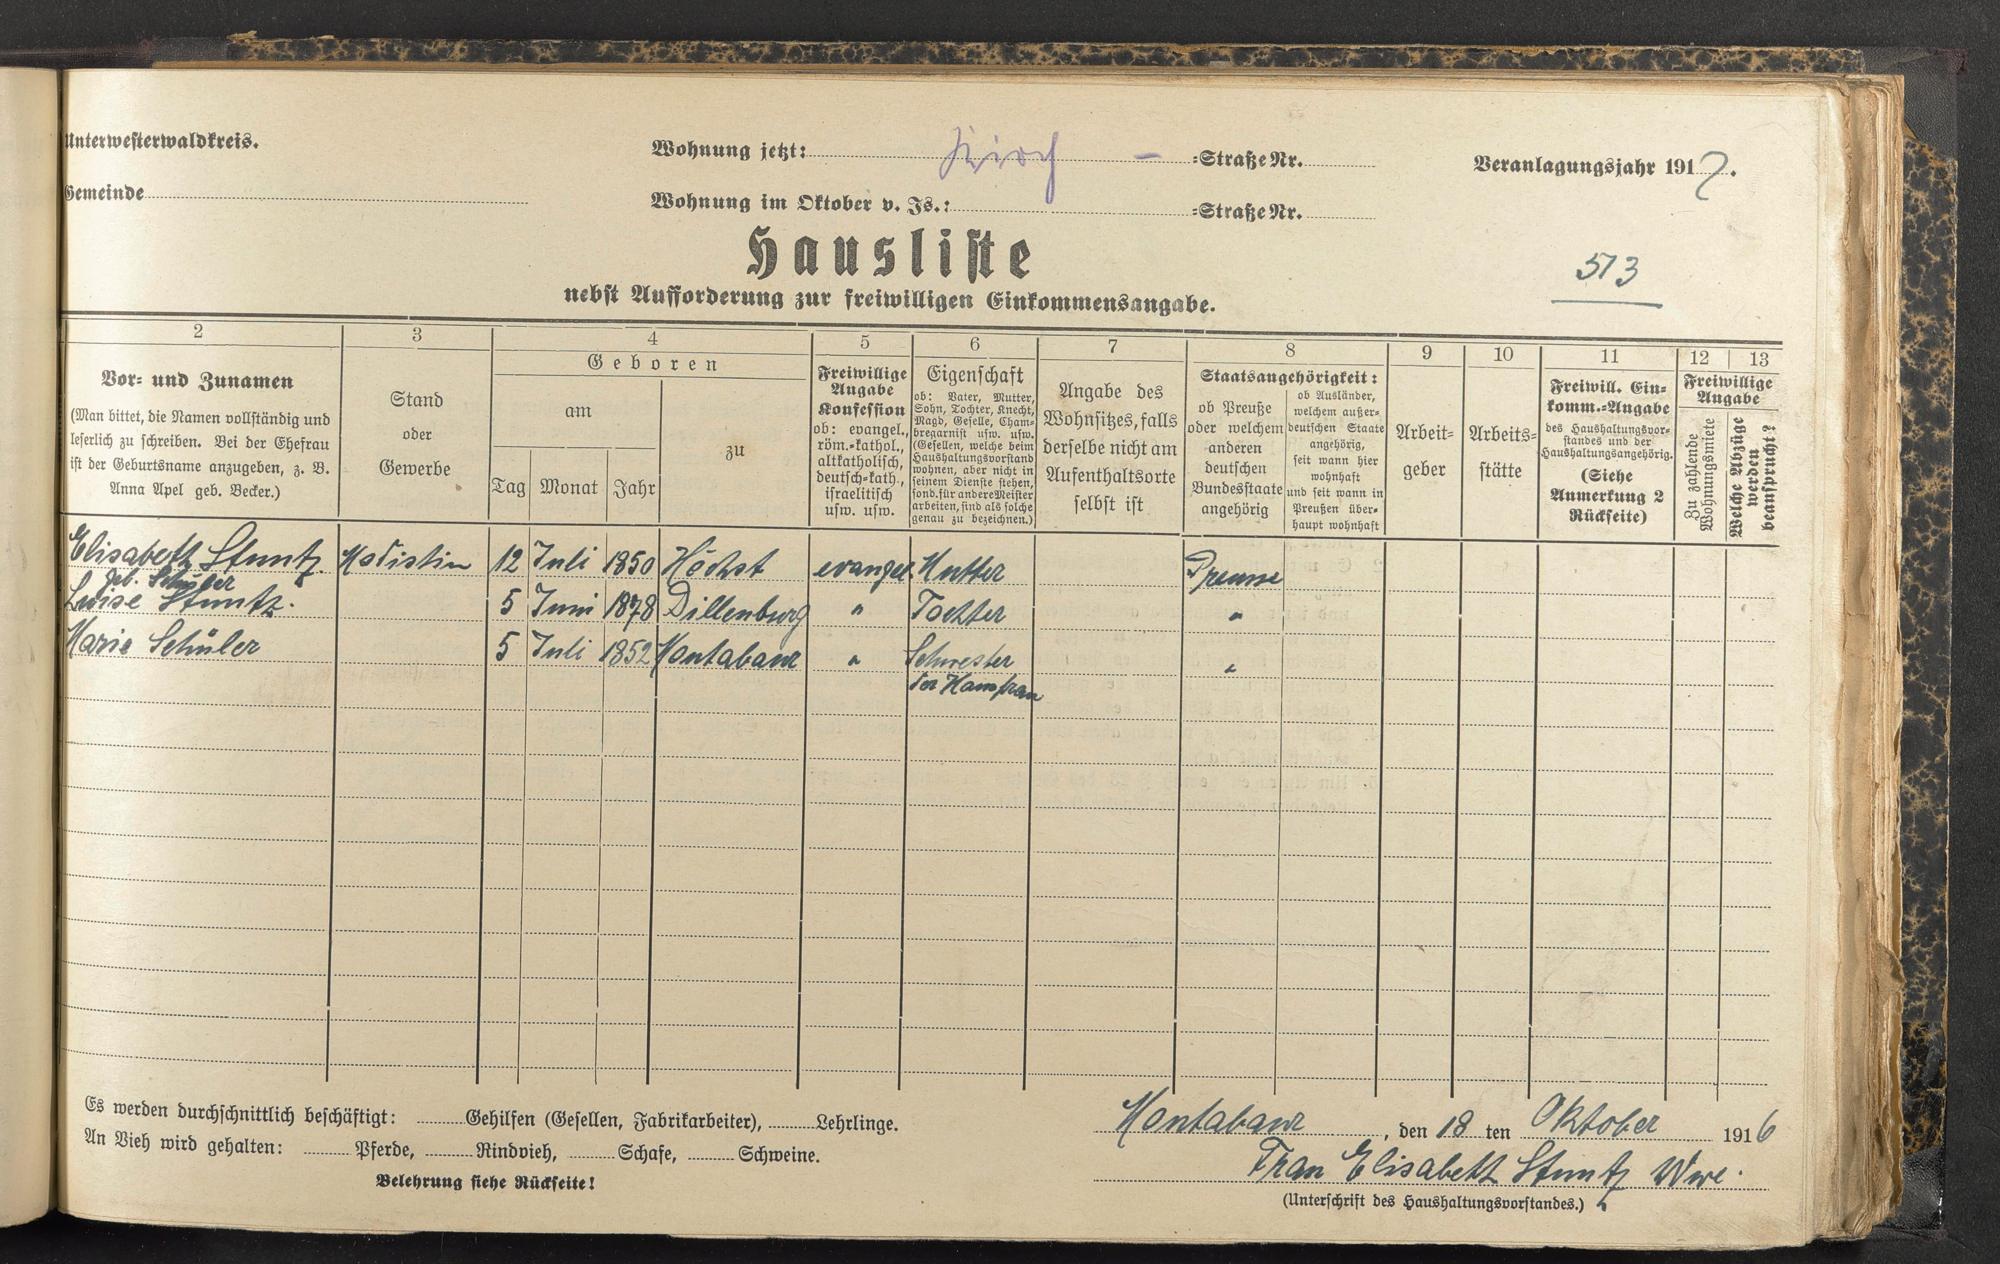 Unterwesterwaldkreis.
Gemeinde
Wohnung jetzt: Kirch - =Straße Nr.
Wohnung im Oktober v. Js.: =Straße Nr.
Veranlagungsjahr 1917.
Hausliste
nebst Aufforderung zur freiwilligen Einkommensangabe.
513
2 3 4 5 6 7 8 9 10 11 12 13
Vor= und Zunamen
(Man bittet, die Namen vollständig und
leserlich zu schreiben. Bei der Ehefrau
ist der Geburtsname anzugeben, z. B.
Anna Apel geb. Becker.)
Stand
oder
Gewerbe
Geboren
am
Tag Monat Jahr
zu
Freiwillige
Angabe
Konfession
ob: evangel.,
röm.=kathol.,
altkatholisch,
deutsch=kath.,
israelitisch
usw. usw.
Eigenschaft
ob: Vater, Mutter,
Sohn, Tochter, Knecht,
Magd, Geselle, Cham=
bregarnist usw. usw.
(Gesellen, welche beim
Haushaltungsvorstand
wohnen, aber nicht in
seinem Dienste stehen,
sond. für andere Meister
arbeiten, sind als solche
genau zu bezeichnen.)
Angabe des
Wohnsitzes, falls
derselbe nicht am
Aufenthaltsorte
selbst ist
Staatsangehörigkeit:
ob Preuße
oder welchem
anderen
deutschen
Bundesstaate
angehörig
ob Ausländer,
welchem außer=
deutschen Staate
angehörig,
seit wann hier
wohnhaft
und seit wann in
Preußen über=
haupt wohnhaft
Arbeit=
geber
Arbeits=
stätte
Freiwill. Ein=
komm.=Angabe
des Haushaltungsvor=
standes und der
Haushaltungsangehörig.
(Siehe
Anmerkung 2
Rückseite)
Freiwillige
Angabe
Zu zahlende
Wohnungsmiete
Welche Abzüge
werden
beansprucht?
Elisabeth Stuntz Modistin 12 Juli 1850 Höchst evangel. Mutter Preusse
geb. Schüler
Luise Stuntz. 5 Juni 1878 Dillenburg " Tochter "
Marie Schüler 5 Juli 1852 Montabaur " Schwester "
der Hausfrau
Es werden durchschnittlich beschäftigt: Gehilfen (Gesellen, Fabrikarbeiter), Lehrlinge.
An Vieh wird gehalten: Pferde, Rindvieh, Schafe, Schweine.
Belehrung siehe Rückseite!
Montabaur, den 18 ten Oktober 1916
Frau Elisabeth Stuntz Wwe.
(Unterschrift des Haushaltungsvorstandes.)